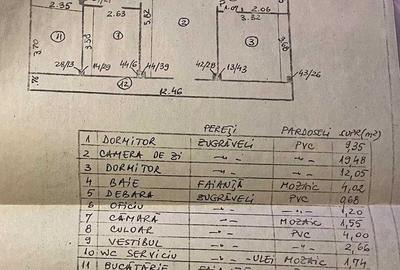 2.35 2.63 5.82 2 1.07 2.06
3.32
11 1 3
3.70 3.53
28/13 14/29 44/6 44/39 42/28 13/43 43/26
12
12.46
PEREȚI PARDOSELI SUPR(m2)
1 DORMITOR ZUGRĂVELI PVC 9,35
2 CAMERA DE ZI -"- -"- 19,48
3 DORMITOR -"- -"- 12,05
4 BAIE FAIANȚĂ MOZAIC 4,02
5 DEBARA ZUGRĂVELI PVC 0,68
6 OFICIU -"- -"- 1,20
7 CĂMARA -"- MOZAIC 1,55
8 CULOAR -"- PVC 4,00
9 VESTIBUL -"- -"- 2,66
10 WC SERVICIU -"- -ULEI MOZAIC 1,74
11 BUCĂTĂRIE FAIANȚĂ